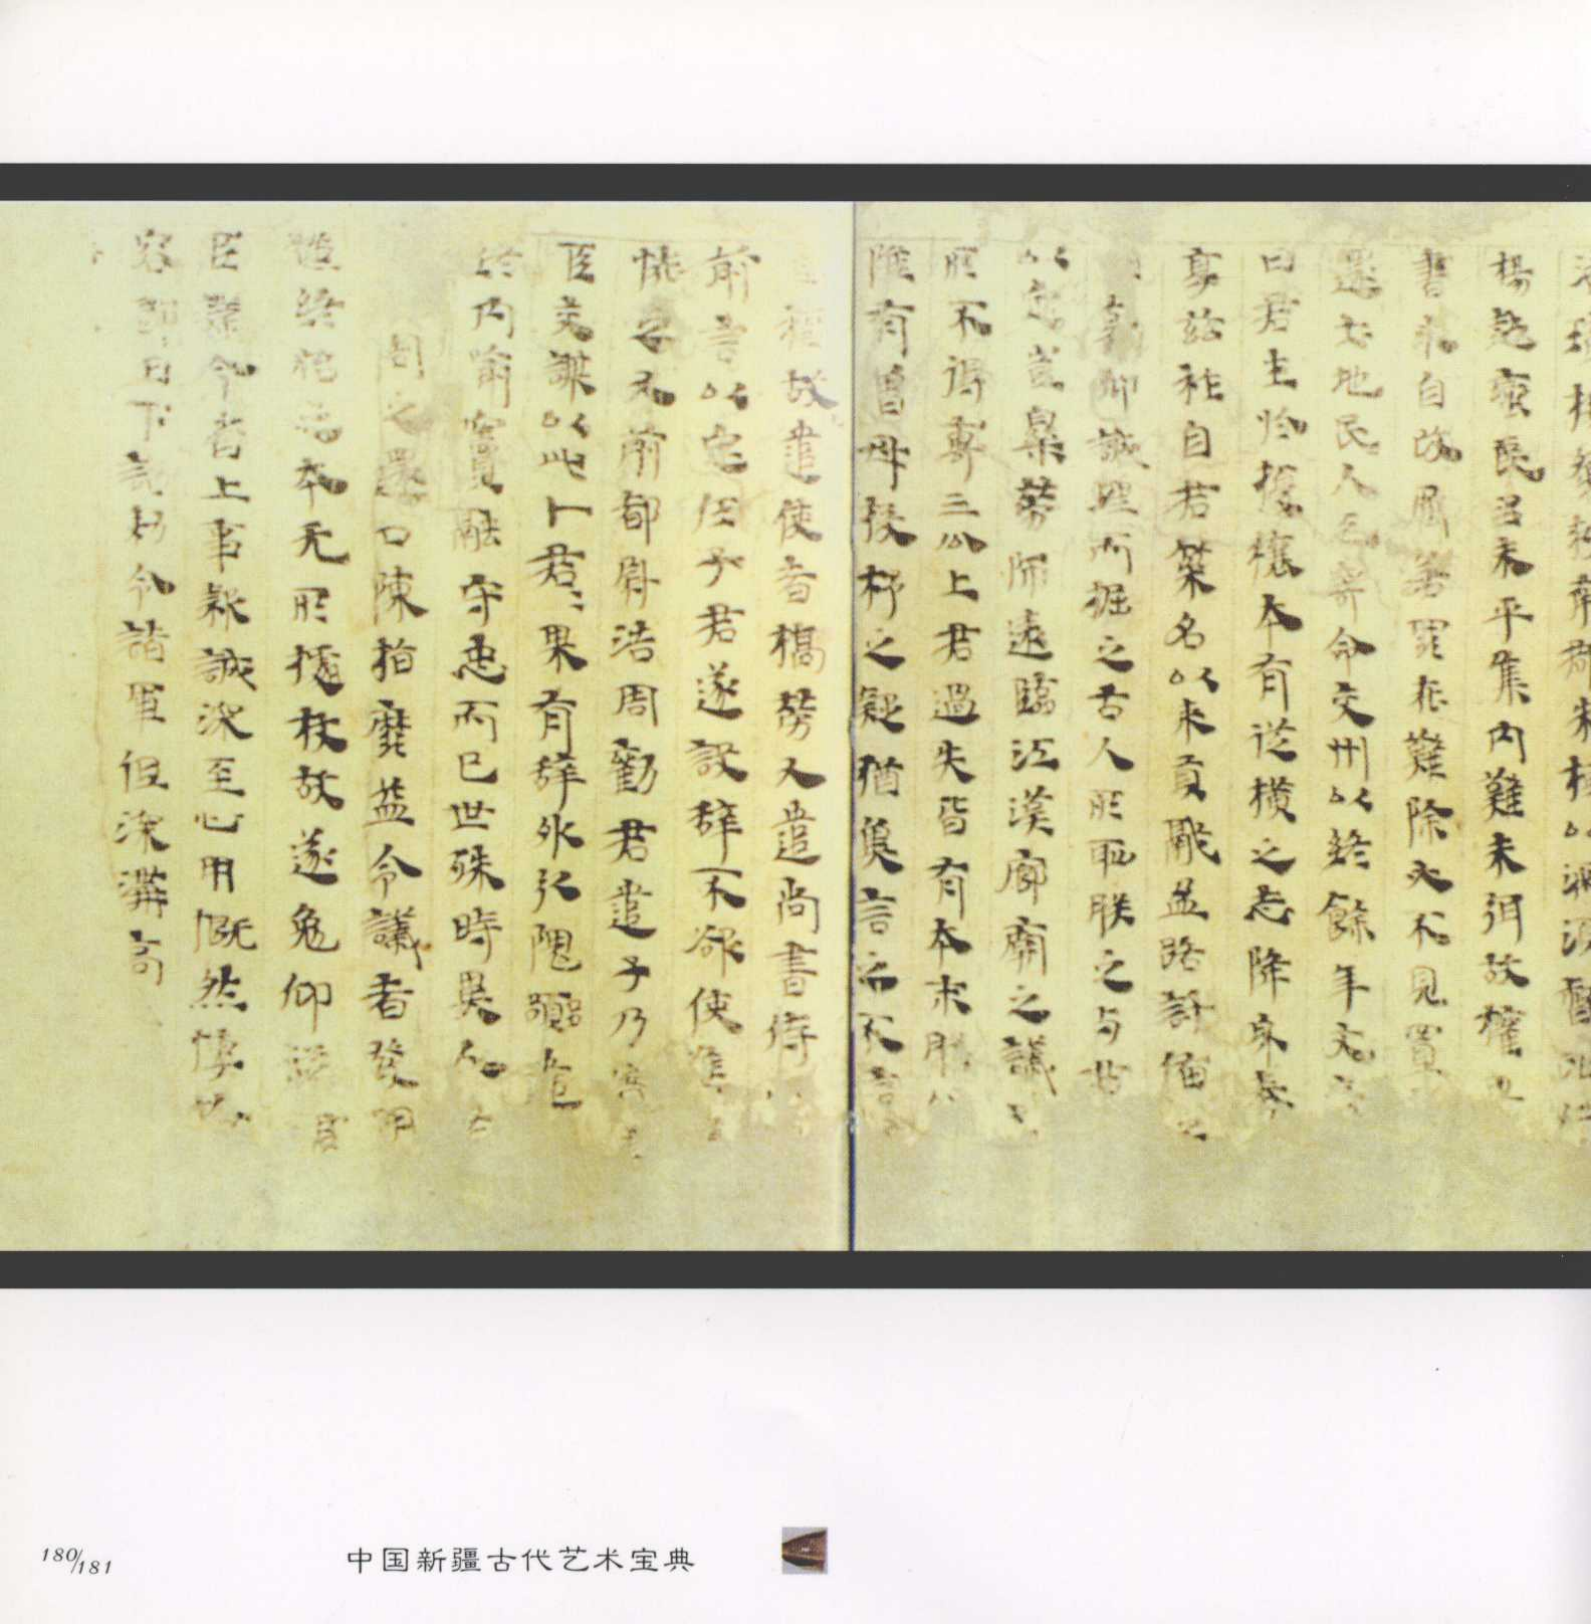 璋楊粲救南郡朱桓以濡須督拒仁
楊越蠻夷多未平集內難未弭故權卑
書求自改厲若罪在難除必不見置
還土地民人乞寄命交州以終餘年文
曰君生於擾攘本有從橫之志降身奉
享茲祚自君策名以來貢獻盈路討備之
仰誠埋而掘之古人所恥朕之与君
以定豈樂勞師遠臨江漢廊廟之議王
所不得專三公上君過失皆有本末朕以
雖有曾母投杼之疑猶冀言之不信
福故遣使者犒勞又遣尚書侍
前言以定任子君遂設辭不欲使進
怪之又前都尉浩周勸君遣子乃實
臣交謀以此卜君〻果有辭外引隗囂遣
終內喻竇融守忠而已世殊時異人各
周之還口陳指麾益令議者發明
嫌終始之本无所據杖故遂俛仰從群
臣議今省上事款誠深至心用慨然悽愴
容即日下詔敕諸軍但深溝高
180/181
中国新疆古代艺术宝典